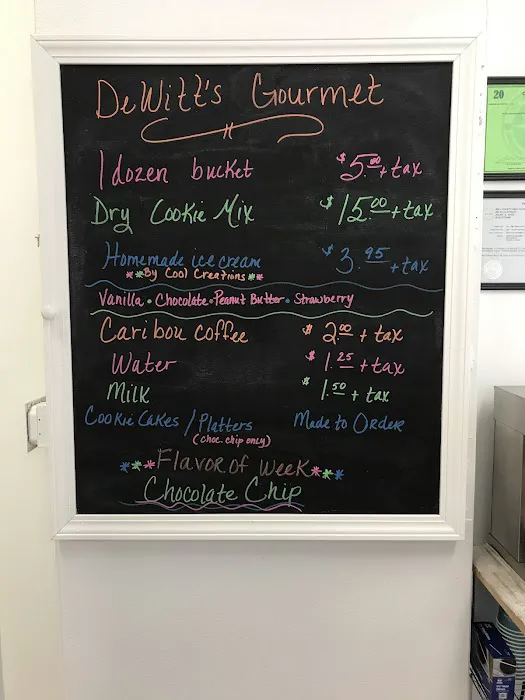 DeWitt's Gourmet
1 dozen bucket $5.00 + tax
Dry Cookie Mix $15.00 + tax
Homemade ice cream $3.95 + tax
**By Cool Creations**
Vanilla • Chocolate • Peanut Butter • Strawberry
Caribou coffee $2.00 + tax
Water $1.25 + tax
Milk $1.50 + tax
Cookie Cakes / Platters Made to Order
(choc. chip only)
***Flavor of Week***
Chocolate Chip
20